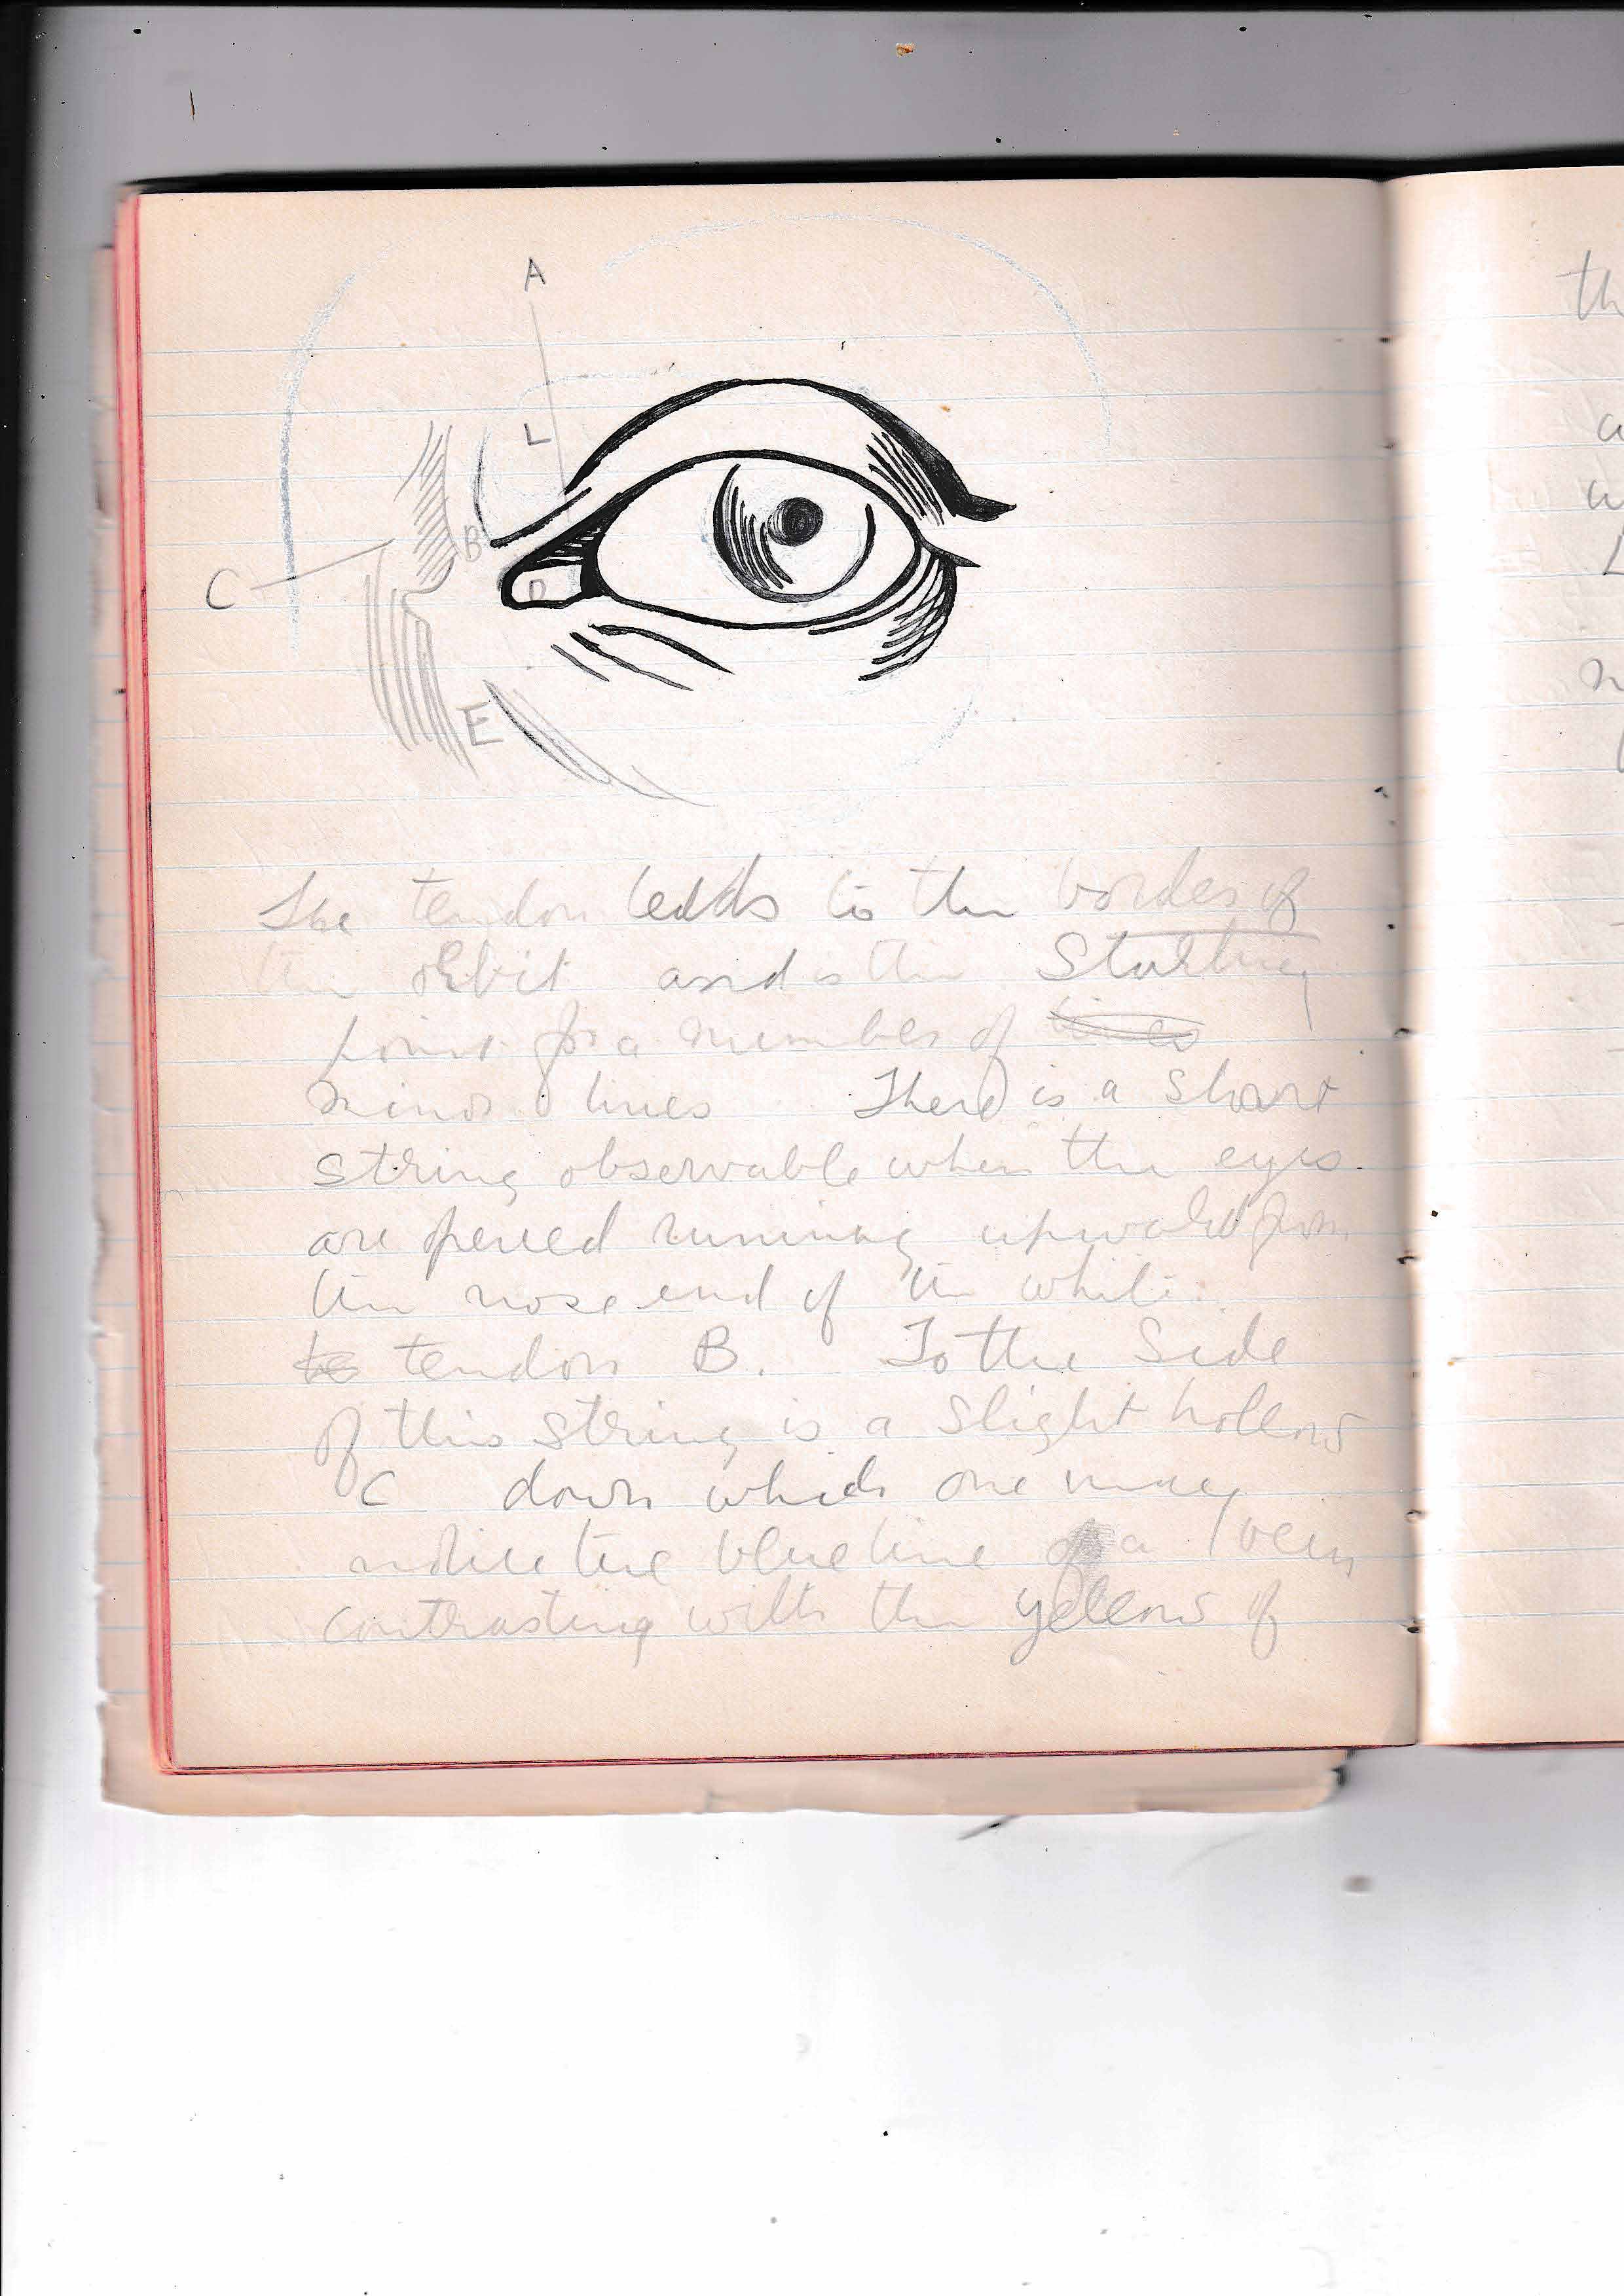 A
L
B
C
D
E
The tendon leads to the border of
the orbit and is the Starting
point for a number of lines
minor lines There is a short
string observable when the eyes
are opened running upward from
the nose end of the white
to tendon B. To the Side
of this string is a slight hollow
C down which one may
notice the blue line of a vein
contrasting with the yellow of
th
a
w
L